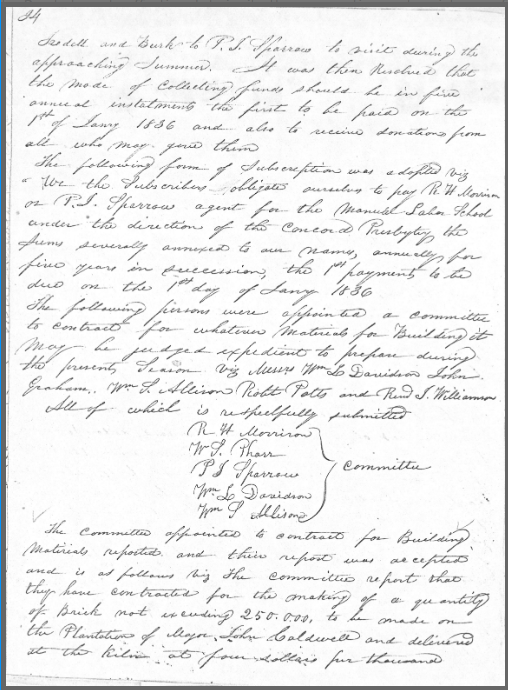 24
Iredell and Burk to P. J. Sparrow to visit during the
approaching Summer. It was then Resolved that
the mode of Collecting funds should be in five
annual instalments the first to be paid on the
1st of Janry 1836 and also to receive donations from
all who may give them
The following form of Subscription was adopted viz
"We the Subscribers, obligate ourselves to pay R. H Morrison
or P. J. Sparrow agent for the Manual Labor School
under the direction of the Concord Presbytery, the
sums severally annexed to our names, annually for
five years in succession, the 1st payment to be
due on the 1st day of Janry 1836
The following persons were appointed a committee
to contract for whatever Materials for Building it
may be judged expedient to prepare during
the present Season viz Messrs Wm L Davidson John
Graham, Wm S. Allison Robt Potts and Revd J. Williamson
All of which is respectfully submitted
R H Morrison
W S. Pharr
P J Sparrow
Wm L Davidson
Wm S Allison
Committee
The Committee appointed to contract for Building
Materials reported and their report was accepted
and is as follows Viz The committee report that
they have contracted for the making of a quantity
of Brick not exceeding 250.000, to be made on
the Plantation of Major John Caldwell and delivered
at the kiln at four dollars per thousand